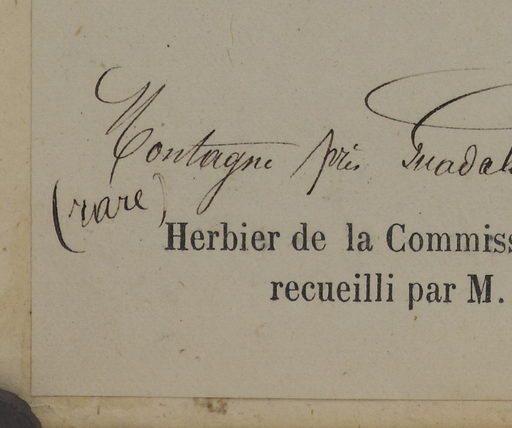 Montagne près Guadal
(rare)
Herbier de la Commiss
recueilli par M.